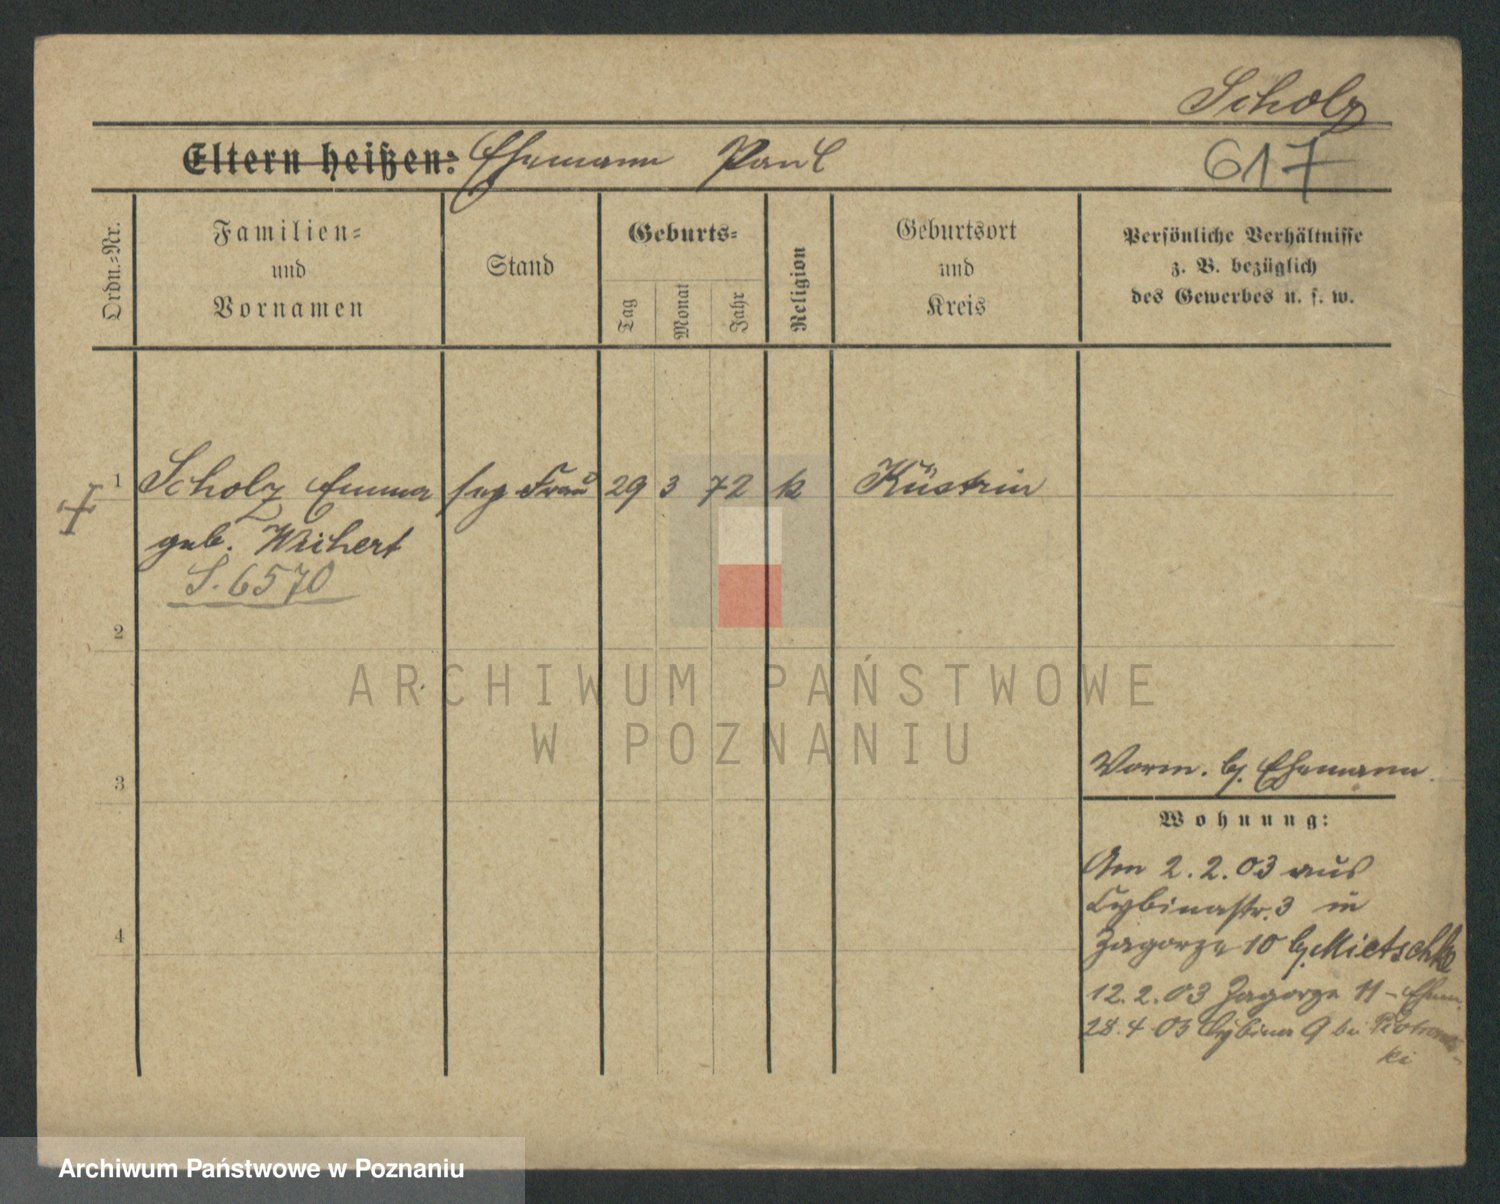 Scholz
Eltern heißen: Ehemann Paul
617
Ordn.=Nr.
Familien=
und
Vornamen
Stand
Geburts=
Tag
Monat
Jahr
Religion
Geburtsort
und
Kreis
Persönliche Verhältnisse
z. B. bezüglich
des Gewerbes u. s. w.
1 Scholz Emma Frau 29 3 72 k Küstrin
geb. Weihert
S. 6570
2
ARCHIWUM PAŃSTWOWE
W POZNANIU
3
Vorm. b. Ehemann.
Wohnung:
Am 2.2.03 aus
Cybinastr. 3 in
4
Zagorze 10 b. Mietschke
12.2.03 Zagorze 11 - Ehem.
28.4 03 Cybina 9 bei Piotrows-
ki
Archiwum Państwowe w Poznaniu